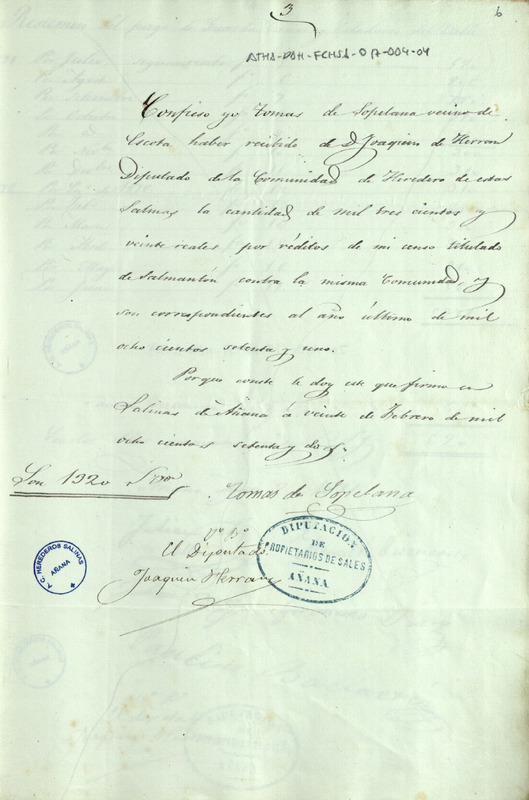 3
6
ATHA-DAH-FCHSA-017-004-04
Confieso yo Tomas de Sopelana vecino de
Escota haber recibido de D. Joaquin de Herran
Diputado de la Comunidad de Heredero de estas
Salinas la cantidad de mil tres cientos y
veinte reales por réditos de mi censo titulado
de Salmantón contra la misma Comunidad, y
son correspondientes al año último de mil
ocho cientos setenta y uno.
Porque conste le doy este que firmo en
Salinas de Añana á veinte de Febrero de mil
ocho cientos setenta y dos.
Son 1320 Rrs
Tomas de Sopelana
Vº Bº
El Diputado
Joaquin Herran
DIPUTACION
DE
PROPIETARIOS DE SALES
AÑANA
A. C. HEREDEROS SALINAS
AÑANA